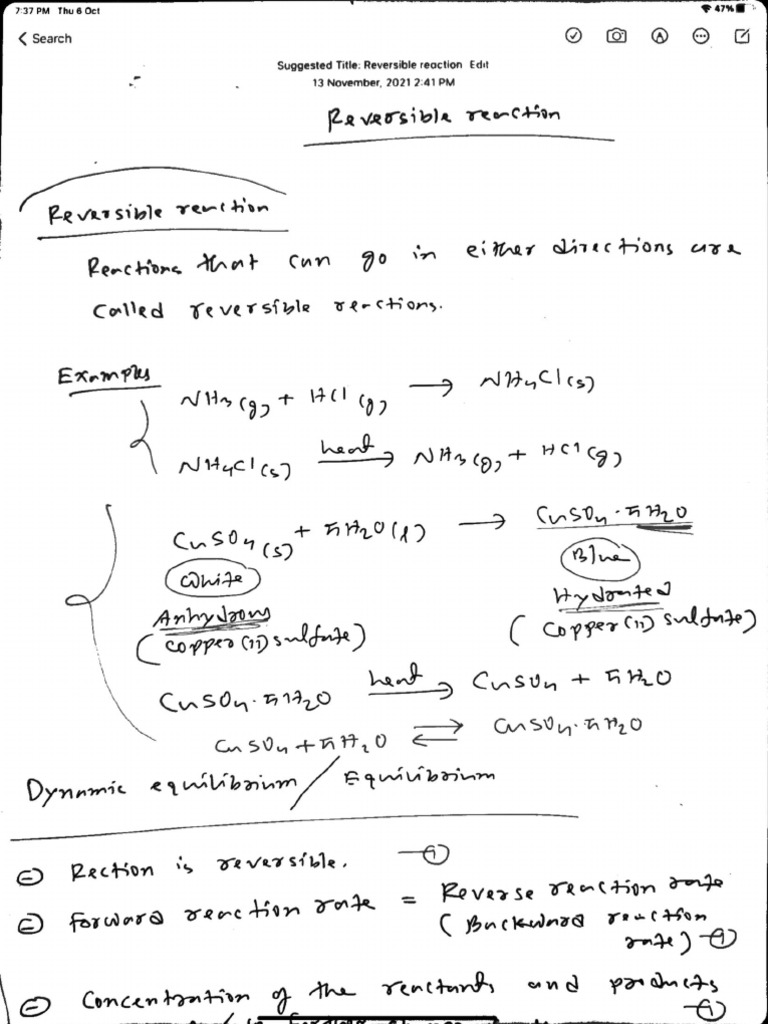 7:37 PM Thu 6 Oct 47%
Search
Suggested Title: Reversible reaction Edit
13 November, 2021 2:41 PM
Reversible reaction
Reversible reaction
Reactions that can go in either directions are
called reversible reactions.
Examples
NH3(g) + HCl(g) → NH4Cl(s)
NH4Cl(s) heat→ NH3(g) + HCl(g)
CuSO4(s) + 5H2O(l) → CuSO4·5H2O
White Blue
Anhydrous Hydrated
(Copper(II) sulfate) (Copper(II) sulfate)
CuSO4·5H2O heat→ CuSO4 + 5H2O
CuSO4 + 5H2O ⇌ CuSO4·5H2O
Dynamic equilibrium / Equilibrium
Rection is reversible. —①
Forward reaction rate = Reverse reaction rate
(Backward reaction
rate) —①
Concentration of the reactants and products
—①